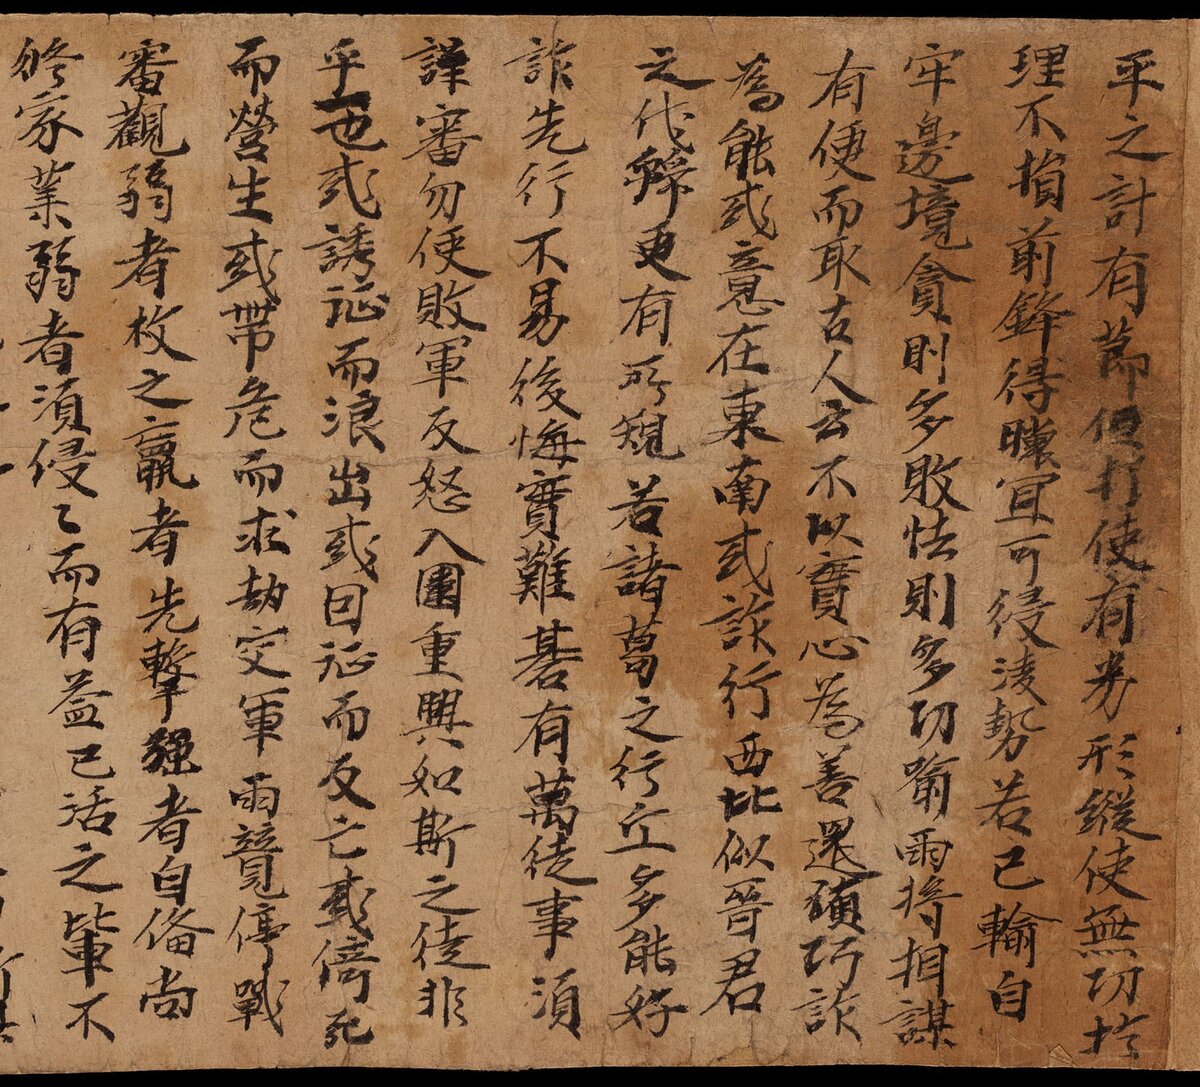 平之計有節但打使有劣形縱使無功於
理不損前鋒得曒冝可侵淩勢若已輸自
牢邊境貪則多敗怯則多功喻兩將相謀
有便而取古人云不以實心為善還須巧詐
為能或意在東南或詐行西北似晉君
之伐虢更有所規若諸葛之行丘多能好
詐先行不易後悔實難碁有萬徒事須
謹審勿使敗軍反怒入圍重興如斯之徒非
乎一也或誘征而浪出或因征而反亡或倚死
而營生或帶危而求劫交軍兩競停戰
審觀弱者枚之羸者先擊強者自俻尚
修家業弱者須侵〻而有益已活之軰不